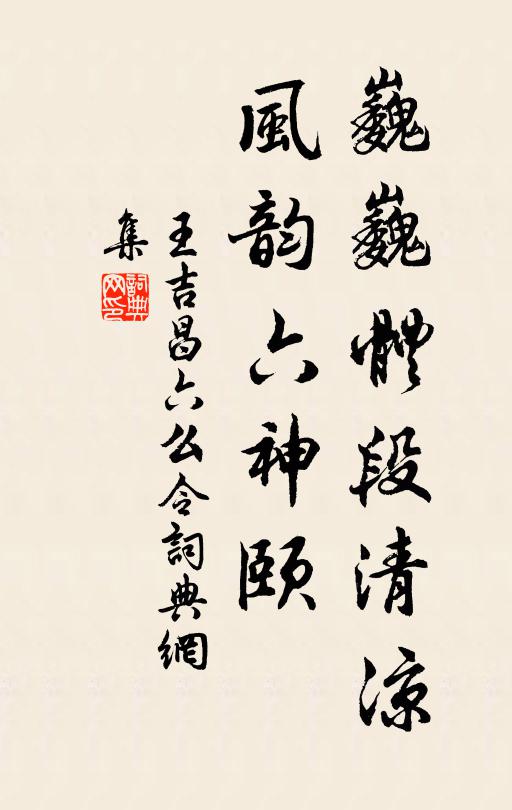 巍巍體段清涼
風韵六神頤
王吉昌六么令詞典網
集
詞典
网印